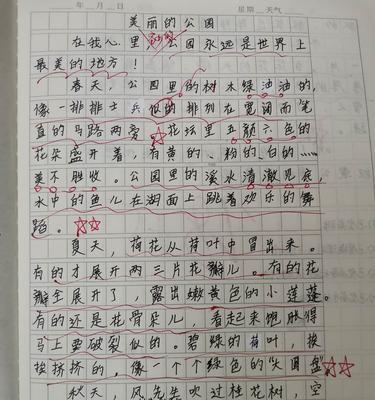 年 月 日 星期 天气
美丽的公园
在我心里 公园永远是世界上
最美的地方！
春天，公园里的树木绿油油的，
像一排排士兵似的排列在宽阔而笔
直的马路两旁 花坛里五颜六色的
花朵盛开着，有黄的、粉的、白的……
美不胜收。公园里的溪水清澈见底，
水中的鱼儿在湖面上跳着欢乐的舞
蹈。
夏天，荷花从荷叶中冒出来。
有的才展开两三片花瓣儿。有的花
瓣全展开了，露出嫩黄色的小莲蓬。
有的还是花骨朵儿，看起来饱胀得
马上要破裂似的。碧绿的荷叶，挨
挨挤挤的，像一个个绿色的“大圆盘”
秋天，风先生吹过桂花树，空